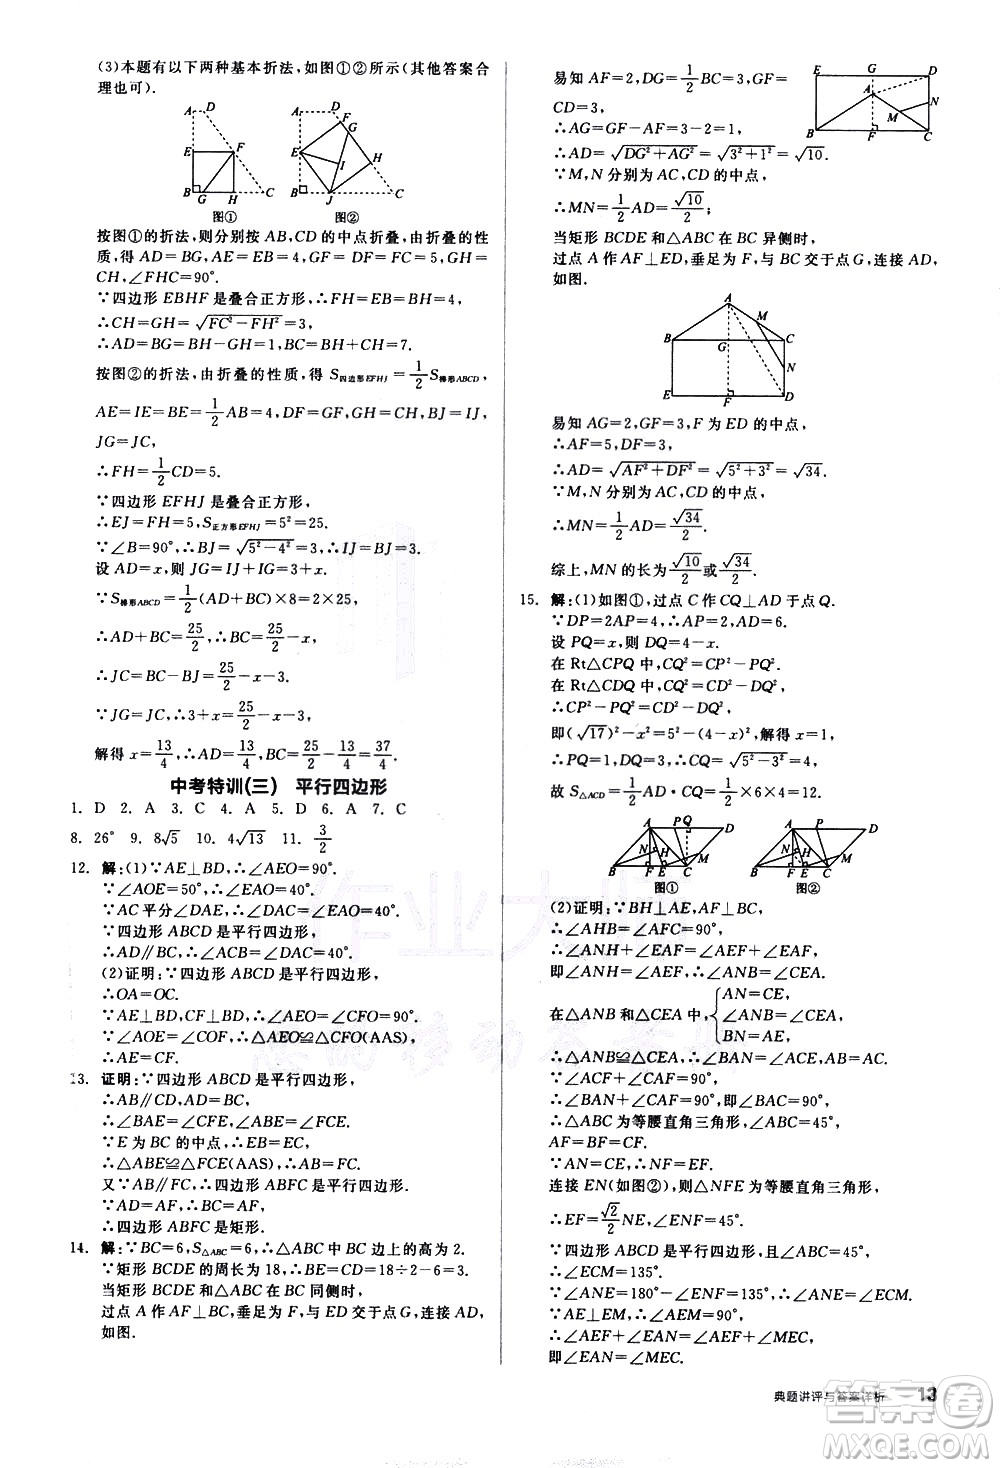 (3)本题有以下两种基本折法,如图①②所示(其他答案合
理也可).
A D E F B G H C
图①
A D F G E H I B J C
图②
按图①的折法,则分别按 AB,CD 的中点折叠,由折叠的性
质,得 AD=BG,AE=EB=4,GF=DF=FC=5,GH=
CH,∠FHC=90°.
∵四边形 EBHF 是叠合正方形,∴FH=EB=BH=4,
∴CH=GH=√(FC²-FH²)=3,
∴AD=BG=BH-GH=1,BC=BH+CH=7.
按图②的折法,由折叠的性质,得 S四边形EFHJ=1/2 S梯形ABCD,
AE=IE=BE=1/2 AB=4,DF=GF,GH=CH,BJ=IJ,
JG=JC,
∴FH=1/2 CD=5.
∵四边形 EFHJ 是叠合正方形,
∴EJ=FH=5,S正方形EFHJ=5²=25.
∵∠B=90°,∴BJ=√(5²-4²)=3,∴IJ=BJ=3.
设 AD=x,则 JG=IJ+GI=3+x.
∵S梯形ABCD=1/2(AD+BC)×8=2×25,
∴AD+BC=25/2,∴BC=25/2-x,
∴JC=BC-BJ=25/2-x-3.
∵JG=JC,∴3+x=25/2-x-3,
解得 x=13/4,∴AD=13/4,BC=25/2-13/4=37/4.
中考特训(三) 平行四边形
1. D 2. A 3. C 4. A 5. D 6. A 7. C
8. 26° 9. 8√5 10. 4√13 11. 3/2
12. 解:(1)∵AE⊥BD,∴∠AEO=90°.
∵∠AOE=50°,∴∠EAO=40°.
∵AC平分∠DAE,∴∠DAC=∠EAO=40°.
∵四边形 ABCD 是平行四边形,
∴AD∥BC,∴∠ACB=∠DAC=40°.
(2)证明:∵四边形 ABCD 是平行四边形,
∴OA=OC.
∵AE⊥BD,CF⊥BD,∴∠AEO=∠CFO=90°.
∵∠AOE=∠COF,∴△AEO≌△CFO(AAS),
∴AE=CF.
13. 证明:∵四边形 ABCD 是平行四边形,
∴AB∥CD,AD=BC,
∴∠BAE=∠CFE,∠ABE=∠FCE.
∵E 为 BC 的中点,∴EB=EC,
∴△ABE≌△FCE(AAS),∴AB=FC.
又∵AB∥FC,∴四边形 ABFC 是平行四边形.
∵AD=AF,∴BC=AF,
∴四边形 ABFC 是矩形.
14. 解:∵BC=6,S△ABC=6,∴△ABC 中 BC 边上的高为 2.
∵矩形 BCDE 的周长为 18,∴BE=CD=18÷2-6=3.
当矩形 BCDE 与△ABC 在 BC 同侧时,
过点 A 作 AF⊥BC,垂足为 F,与 ED 交于点 G,连接 AD,
如图.
易知 AF=2,DG=1/2 BC=3,GF=
CD=3,
∴AG=GF-AF=3-2=1,
∴AD=√(DG²+AG²)=√(3²+1²)=√10.
∵M,N 分别为 AC,CD 的中点,
∴MN=1/2 AD=√10/2;
E G D A N M B F C
当矩形 BCDE 与△ABC 在 BC 异侧时,
过点 A 作AF⊥ED,垂足为 F,与 BC 交于点 G,连接 AD,
如图.
A M B G C N E F D
易知 AG=2,GF=3,F 为 ED 的中点,
∴AF=5,DF=3,
∴AD=√(AF²+DF²)=√(5²+3²)=√34.
∵M,N 分别为 AC,CD 的中点,
∴MN=1/2 AD=√34/2.
综上,MN 的长为 √10/2 或 √34/2.
15. 解:(1)如图①,过点 C 作 CQ⊥AD 于点 Q.
∵DP=2AP=4,∴AP=2,AD=6.
设 PQ=x,则 DQ=4-x.
在 Rt△CPQ 中,CQ²=CP²-PQ²,
在 Rt△CDQ 中,CQ²=CD²-DQ²,
∴CP²-PQ²=CD²-DQ²,
即(√17)²-x²=5²-(4-x)²,解得 x=1,
∴PQ=1,∴DQ=4-x=3,∴CQ=√(5²-3²)=4,
故 S△ACD=1/2 AD·CQ=1/2×6×4=12.
A P Q D N H M B F E C
图①
A P D N H M B F E C
图②
(2)证明:∵BH⊥AE,AF⊥BC,
∴∠AHN=∠AFC=90°,
∴∠ANH+∠EAF=∠AEF+∠EAF,
即∠ANH=∠AEF,∴∠ANB=∠CEA.
在△ANB 和△CEA 中,{AN=CE, ∠ANB=∠CEA, BN=AE,
∴△ANB≌△CEA,∴∠BAN=∠ACE.
∵∠ACE+∠CAF=90°,
∴∠BAN+∠CAF=90°,即∠BAC=90°,
∴△ABC 为等腰直角三角形,∠ABC=45°,
AF=BF=CF.
∵AN=CE,∴NF=EF.
连接 EN(如图②),则△NFE 为等腰直角三角形,
∴EF=√2/2 NE,∠FNE=45°.
∵四边形为平行四边形,∠ABC=45°,
∴∠ECM=135°.
∵∠ANE=180°-∠ENF=135°,∴∠ANE=∠ECM.
∵AE⊥EM,∴∠AEM=90°,
∴∠AEF+∠EAF=∠AEF+∠MEC,
即∠EAN=∠MEC,
典题讲评与答案详析 13
作业大师
答案圈
MXQE.COM